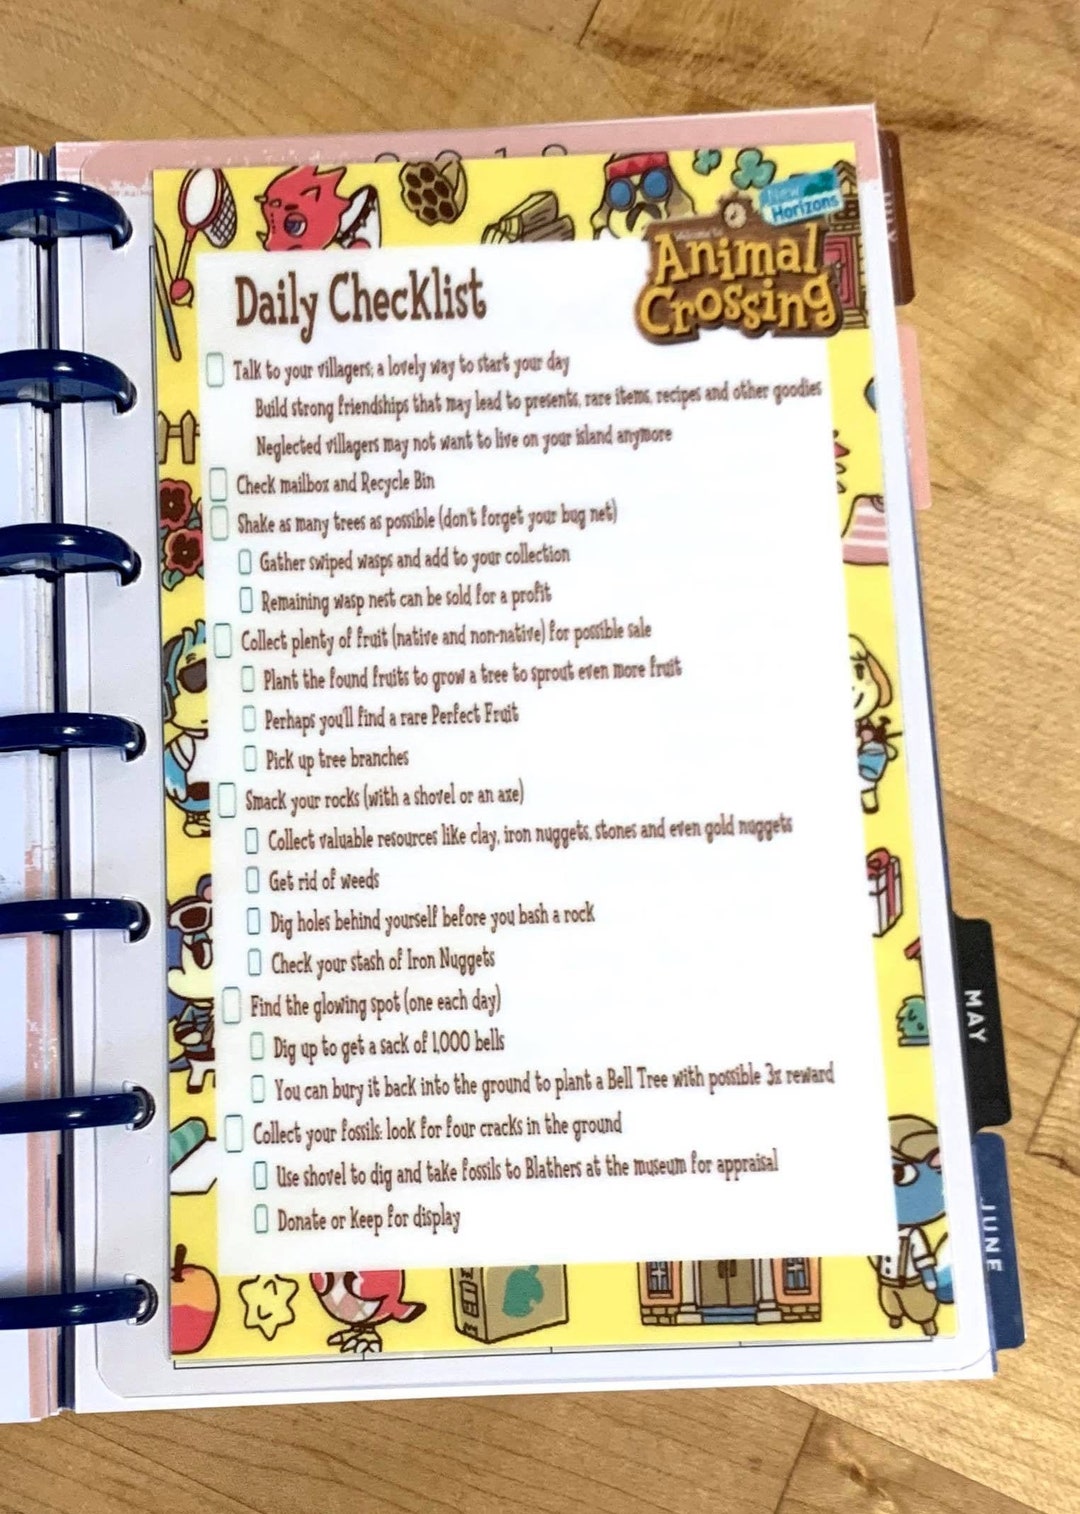 New
Horizons
Welcome to
Animal
Crossing
Daily Checklist
Talk to your villagers; a lovely way to start your day
Build strong friendships that may lead to presents, rare items, recipes and other goodies
Neglected villagers may not want to live on your island anymore
Check mailbox and Recycle Bin
Shake as many trees as possible (don't forget your bug net)
Gather swiped wasps and add to your collection
Remaining wasp nest can be sold for a profit
Collect plenty of fruit (native and non-native) for possible sale
Plant the found fruits to grow a tree to sprout even more fruit
Perhaps you'll find a rare Perfect Fruit
Pick up tree branches
Smack your rocks (with a shovel or an axe)
Collect valuable resources like clay, iron nuggets, stones and even gold nuggets
Get rid of weeds
Dig holes behind yourself before you bash a rock
Check your stash of Iron Nuggets
Find the glowing spot (one each day)
Dig up to get a sack of 1,000 bells
You can bury it back into the ground to plant a Bell Tree with possible 3x reward
Collect your fossils: look for four cracks in the ground
Use shovel to dig and take fossils to Blathers at the museum for appraisal
Donate or Keep for display
MAY
JUNE